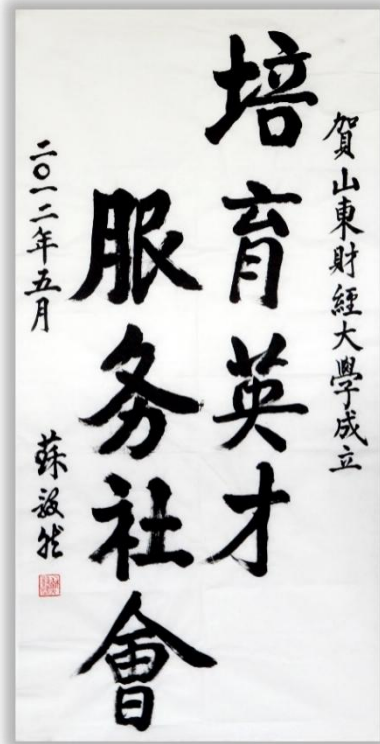 賀山東財經大學成立
培育英才
服务社會
二〇一二年五月
蘇毅然